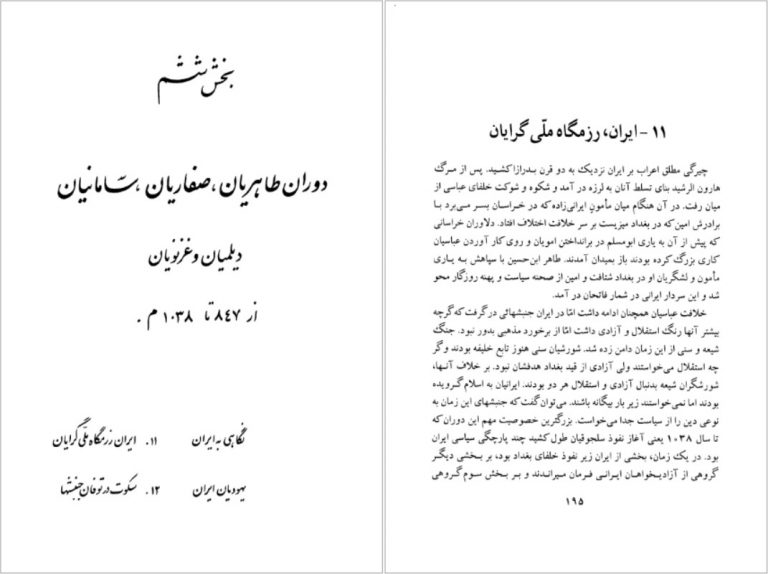 بخش ششم
دوران طاهریان، صفاریان، سامانیان
دیلمیان و غزنویان
از ۸۴۷ تا ۱۰۳۸ م.
نگاهی به ایران ۱۱. ایران رزمگاه ملّی گرایان
یهودیان ایران ۱۲. سکوت در توفان جنبشها
۱۱- ایران، رزمگاه ملّی گرایان
چیرگی مطلق اعراب بر ایران نزدیک به دو قرن بدرازا کشید. پس از مرگ
هارون الرشید بنای تسلط آنان به لرزه در آمد و شکوه و شوکت خلفای عباسی از
میان رفت. در آن هنگام میان مأمون ایرانی‌زاده که در خراسان بسر می‌برد با
برادرش امین که در بغداد میزیست بر سر خلافت اختلاف افتاد. دلاوران خراسانی
که پیش از آن به یاری ابومسلم در برانداختن امویان و روی کار آوردن عباسیان
کاری بزرگ کرده بودند باز بمیدان آمدند. طاهر ابن‌حسین با سپاهش به یاری
مأمون و لشگریان او در بغداد شتافت و امین از صحنه سیاست و پهنه روزگار محو
شد و این سردار ایرانی در شمار فاتحان در آمد.
خلافت عباسیان همچنان ادامه داشت امّا در ایران جنبشهائی در گرفت که گرچه
بیشتر آنها رنگ استقلال و آزادی داشت امّا از برخورد مذهبی بدور نبود. جنگ
شیعه و سنی از این زمان دامن زده شد. شورشیان سنی هنوز تابع خلیفه بودند و گر
چه استقلال می‌خواستند ولی آزادی از قید بغداد هدفشان نبود. بر خلاف آنها،
شورشگران شیعه بدنبال آزادی و استقلال هر دو بودند. ایرانیان به اسلام گرویده
بودند اما نمی‌خواستند زیر بار بیگانه باشند. می‌توان گفت که جنبشهای این زمان به
نوعی دین را از سیاست جدا می‌خواست. بزرگترین خصوصیت مهم این دوران که
تا سال ۱۰۳۸ یعنی آغاز نفوذ سلجوقیان طول کشید چند پارچگی سیاسی ایران
بود. در یک زمان، بخشی از ایران زیر نفوذ خلفای بغداد بود، بر بخشی دیگر
گروهی از آزادیخواهان ایرانی فرمان میراندند و بر بخش سوم گروهی
۱۹۵